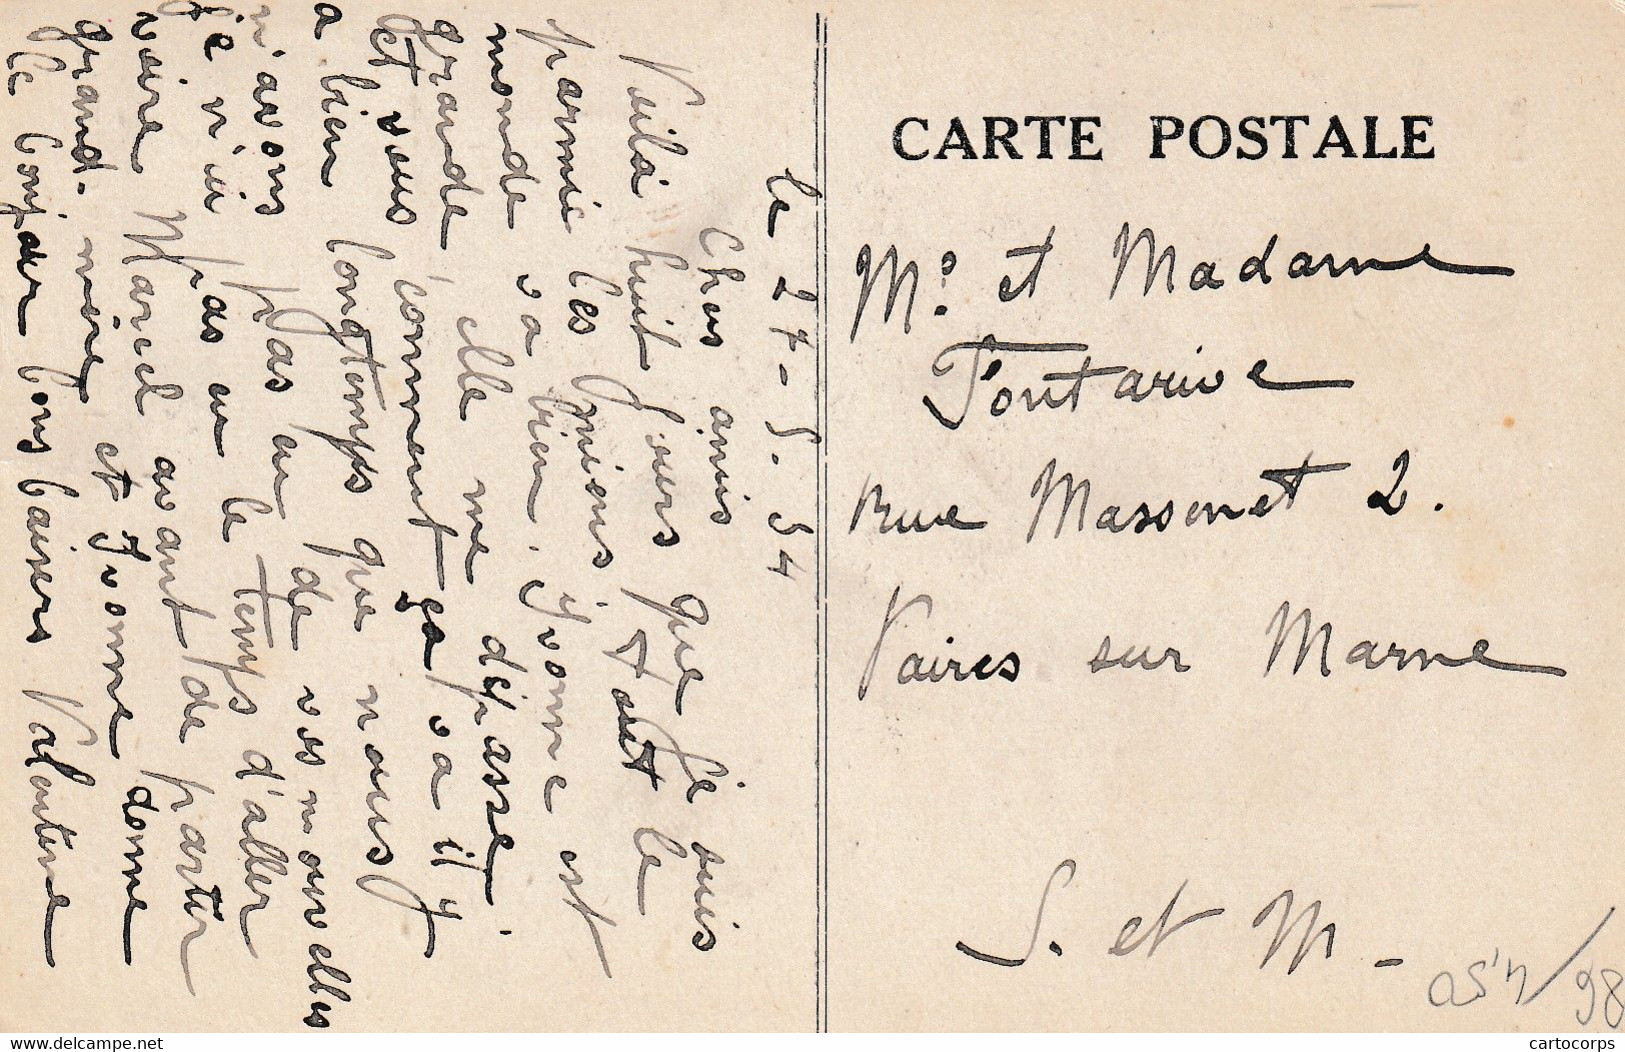 le 27-5.34
Chers amis
Voilà huit jours que je suis
parmie les miens tout le
monde va bien. Yvonne est
grande elle me dépasse.
et vous comment ça va il y
a bien longtemps que nous
n'avons pas eu de vos nouvelles
je n'ai pas eu le temps d'aller
voire Marcel avant de partir
grand-mère et Yvonne donne
le bonjour bons baisers Valentine
CARTE POSTALE
Mr et Madame
Fontarive
rue Massenet 2.
Vaires sur Marne
S. et M-
delcampe.net
cartocorps